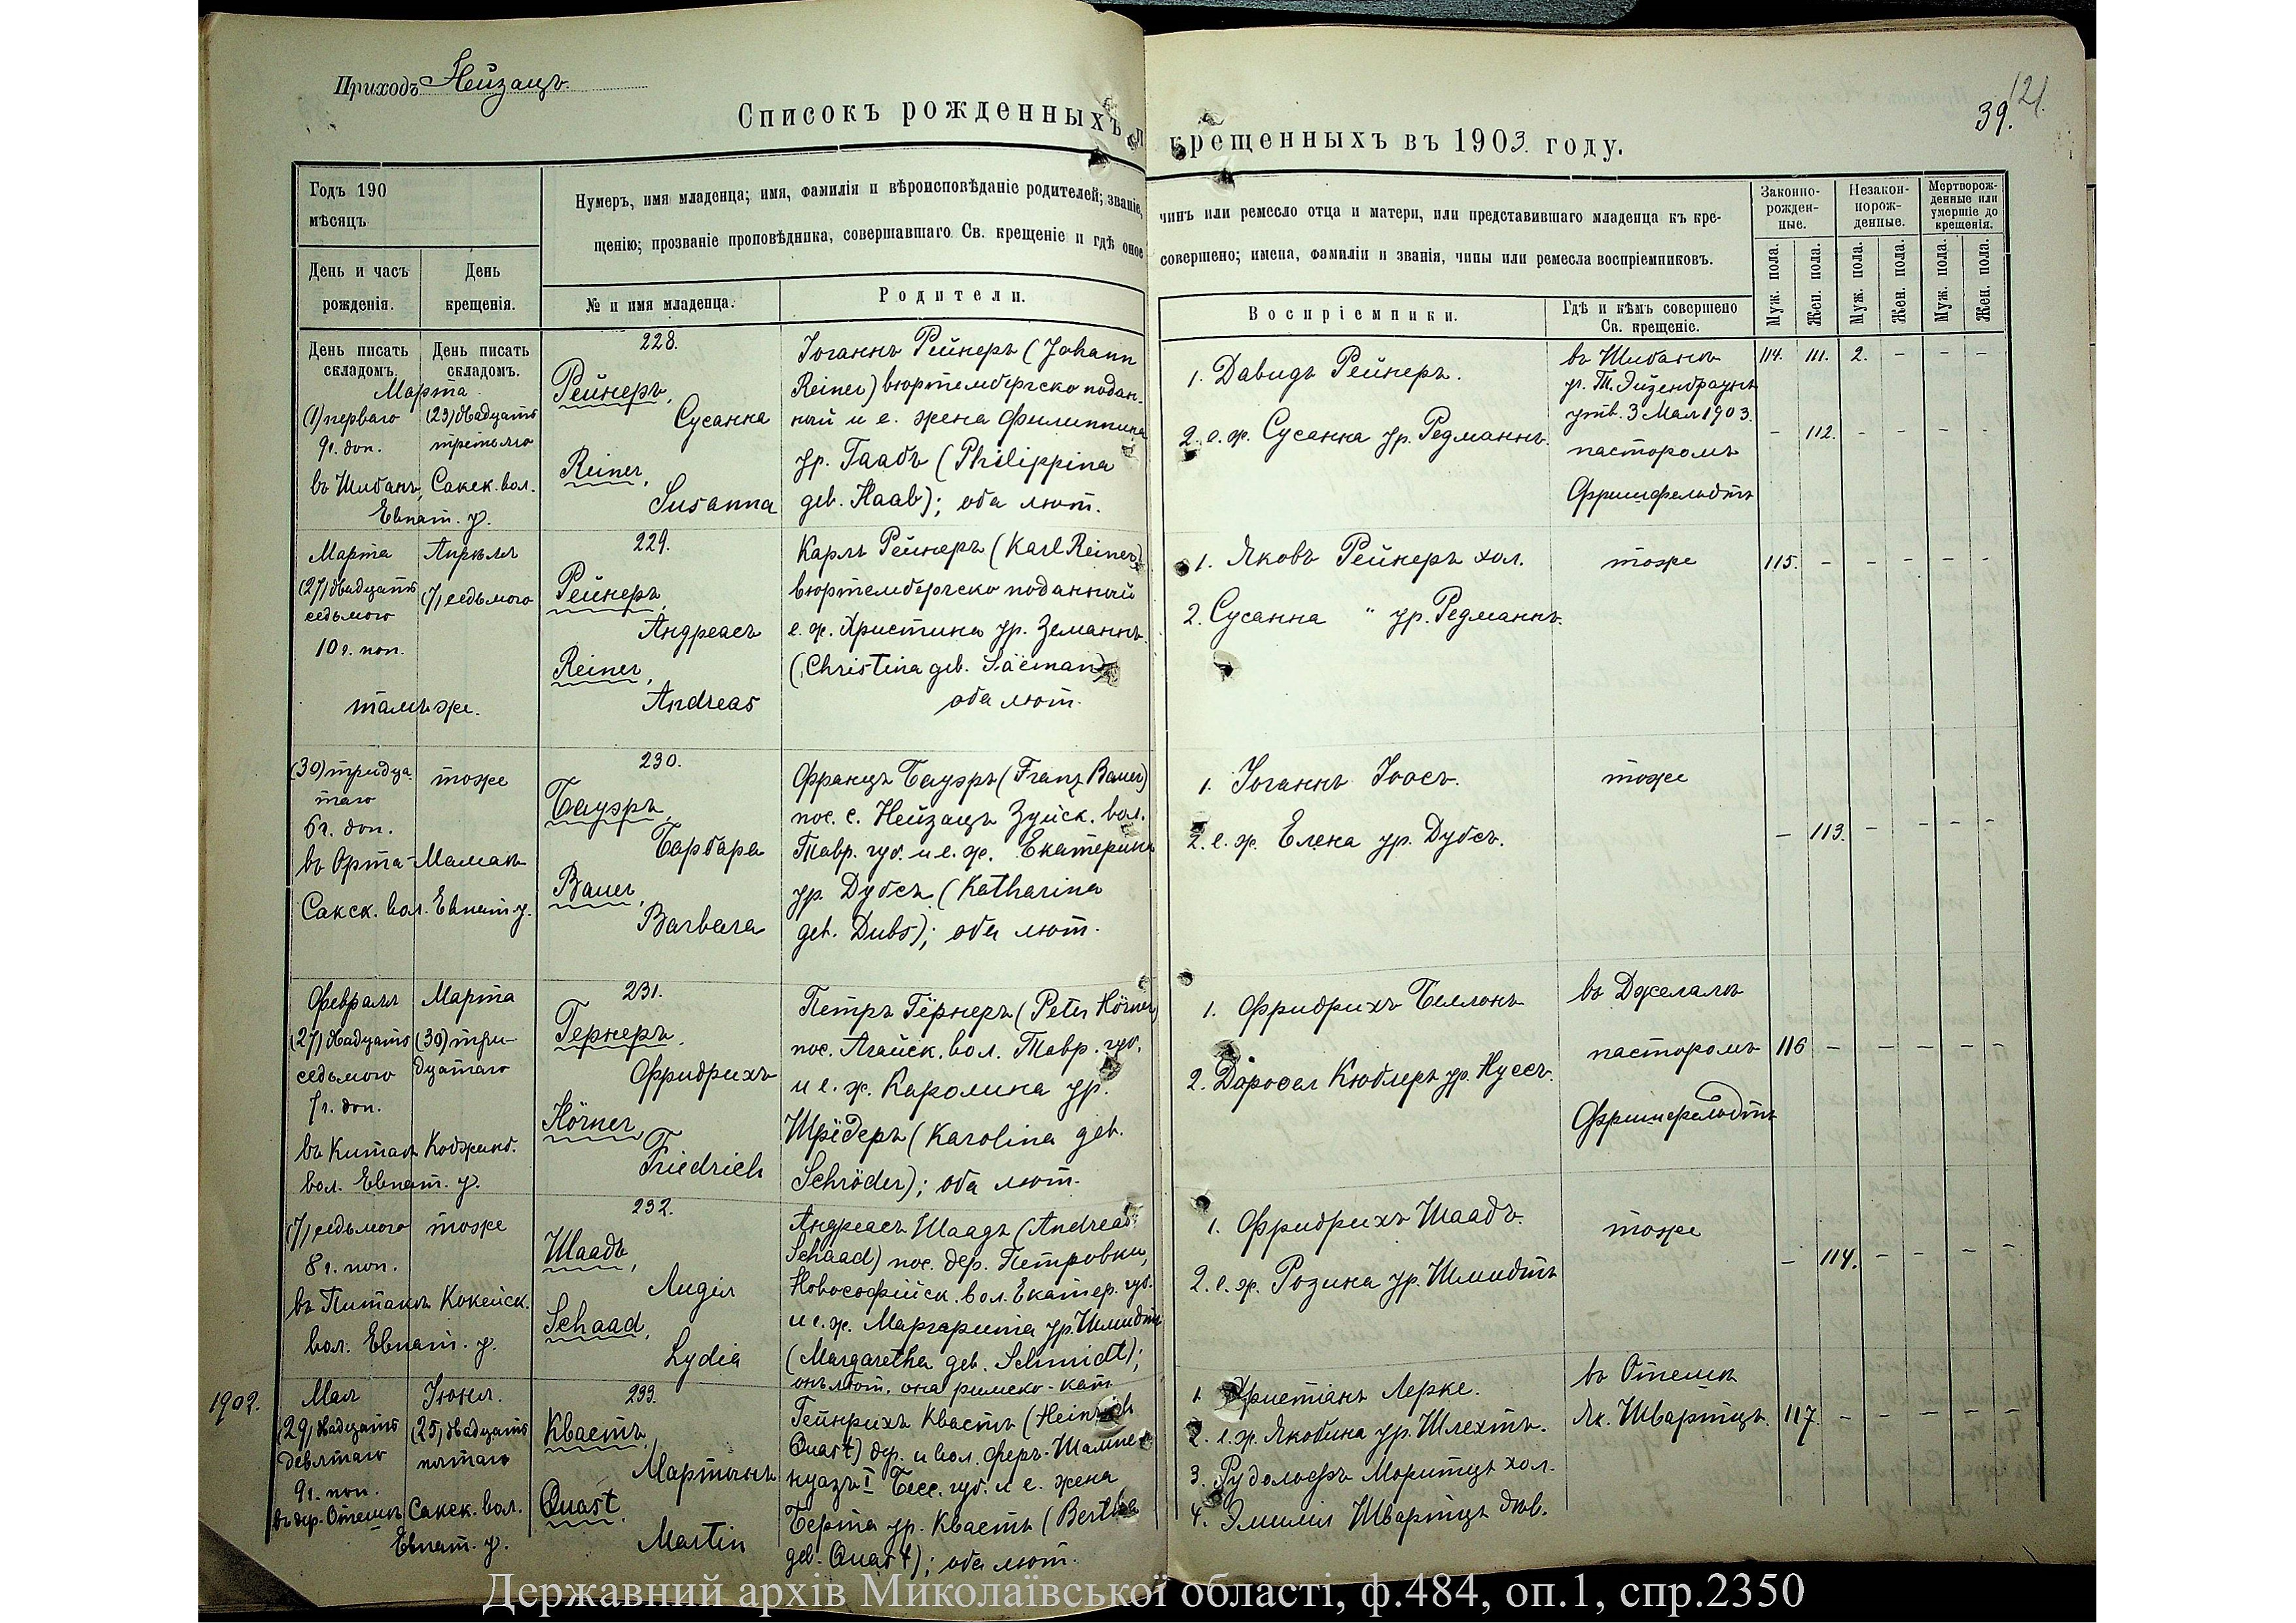 Приходъ Нейзацъ.
121.
39.
Списокъ рожденныхъ и крещенныхъ въ 1903. году.
Годъ 190
мѣсяцъ
Нумеръ, имя младенца; имя, фамилія и вѣроисповѣданіе родителей; званіе, чинъ или ремесло отца и матери, или представившаго младенца къ кре-
щенію; прозваніе проповѣдника, совершавшаго Св. крещеніе и гдѣ оное совершено; имена, фамиліи и званія, чины или ремесла воспріемниковъ.
Законно-
рожден-
ные.
Незакон-
норож-
денные.
Мертворож-
денные или
умершіе до
крещенія.
День и часъ
рожденія.
День
крещенія.
№ и имя младенца.
Родители.
Воспріемники.
Гдѣ и кѣмъ совершено
Св. крещеніе.
Муж. пола.
Жен. пола.
Муж. пола.
Жен. пола.
Муж. пола.
Жен. пола.
День писать
складомъ.
День писать
складомъ.
Марта
(1) перваго
9ч. доп.
(23) двадцать
третьяго
въ Шибань, Сакск. вол.
Евпат. у.
228.
Рейнеръ,
Сусанна
Reiner,
Susanna
Іоганнъ Рейнеръ (Johann
Reiner) вюртембергско поддан-
ный и е. жена Филиппина
ур. Гаабъ (Philippina
geb. Haab); оба лют.
1. Давидъ Рейнеръ.
2. е. ж. Сусанна ур. Редманнъ.
въ Шибань
уч. Т. Эйзенбраунъ
утв. 3 Мая 1903.
пасторомъ
114. 111. 2. - - -
- 112. - - - -
Марта
(27) двадцать
седьмого
10ч. поп.
Апрѣля
(7) седьмого
тамъ же.
229.
Рейнеръ,
Андреасъ
Reiner,
Andreas
Карлъ Рейнеръ (Karl Reiner)
вюртембергско подданный
е. ж. Христина ур. Земаннъ.
(Christina geb. Säeman)
оба лют.
1. Яковъ Рейнеръ хол.
2. Сусанна " ур. Редманнъ.
тоже
115. - - - - -
(30) тридца
таго
6ч. доп.
тоже
въ Орта-Мамакъ
Сакск. вол. Евпат. у.
230.
Бауэръ,
Барбара
Bauer,
Barbara
Францъ Бауэръ (Franz Bauer)
пос. с. Нейзацъ Зуйск. вол.
Тавр. губ. и е. ж. Екатерина
ур. Дубсъ (Katharina
geb. Dubs); оба лют.
1. Іоганнъ Іоосъ.
2. е. ж. Елена ур. Дубсъ.
тоже
- 113. - - - -
Февраля
(27) двадцать
седьмого
7ч. доп.
Марта
(30) три-
дцатаго
въ Китай
вол. Евпат. у.
231.
Гернеръ,
Фридрихъ
Hörner,
Friedrich
Петръ Гёрнеръ (Peter Hörner)
пос. Агайск. вол. Тавр. губ.
и е. ж. Каролина ур.
Шрёдеръ (Karolina geb.
Schröder); оба лют.
1. Фридрихъ Беллонъ
2. Доротея Кюблеръ ур. Нуссъ.
въ Джелалъ
пасторомъ
116 - - - - -
(7) седьмого
8ч. поп.
тоже
вол. Евпат. у.
232.
Шаадъ,
Лидія
Schaad,
Lydia
Андреасъ Шаадъ (Andreas
Schaad) пос. дер. Петровки,
Новософійск. вол. Екатер. губ.
и е. ж. Маргарита ур. Шмидтъ
(Margaretha geb. Schmidt);
онъ лют. она римско-кат.
1. Фридрихъ Шаадъ.
2. е. ж. Розина ур. Шмидтъ
тоже
- 114. - - - -
1902.
Мая
(29) двадцать
девятаго
9ч. поп.
Іюня
(25) двадцать
пятаго
въ дер. Отешъ Сакск. вол.
Евпат. у.
233.
Квастъ,
Мартинъ
Quast,
Martin
Гейнрихъ Квастъ (Heinrich
Quast) дер. и вол. Феръ-Шампе-
нуазъ I Бесс. губ. и е. жена
Берта ур. Квастъ (Bertha
geb. Quast); оба лют.
1. Христіанъ Лерке.
2. е. ж. Якобина ур. Шлехтъ.
3. Рудольфъ Моритцъ хол.
4. Эмилія Швартцъ дѣв.
въ Отешъ
Як. Швартцъ.
117. - - - - -
Державний архів Миколаївської області, ф.484, оп.1, спр.2350